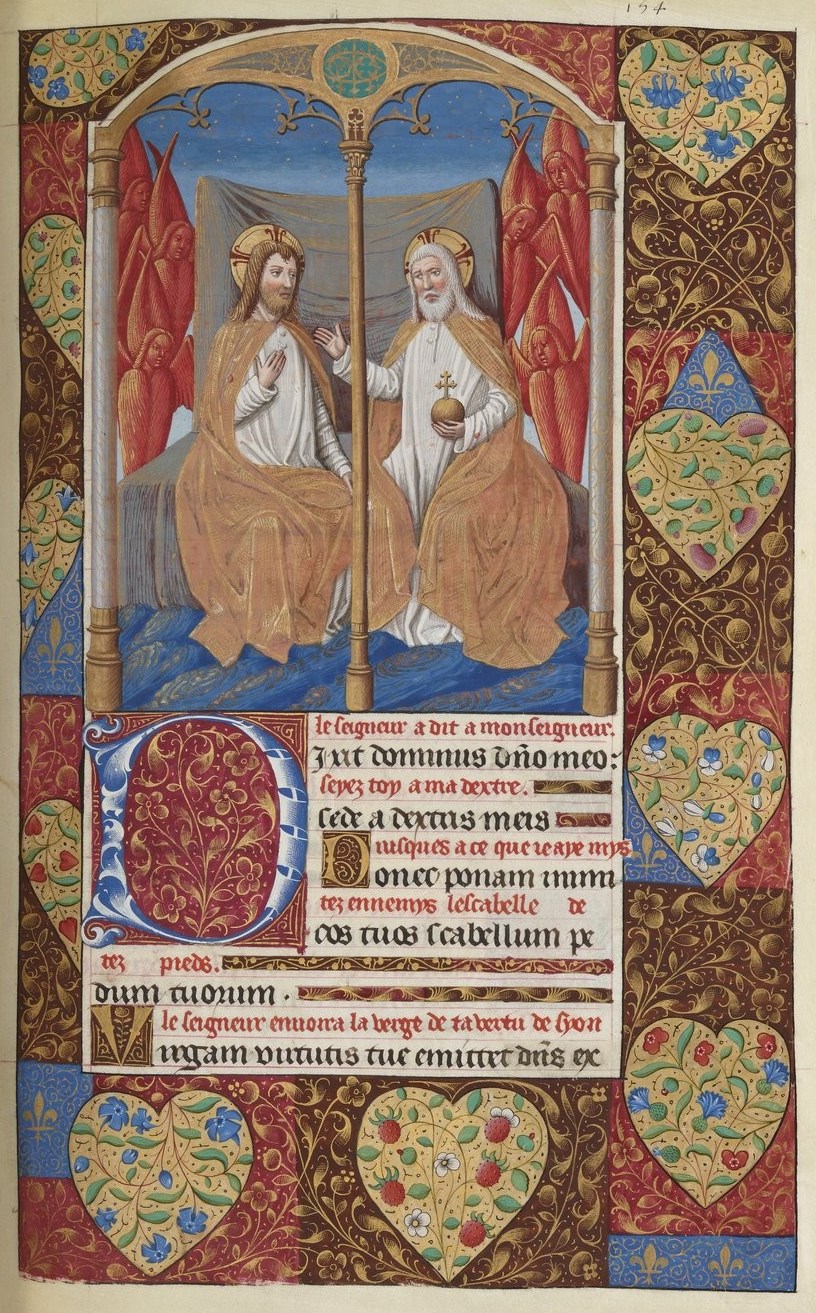 154
le seigneur a dit a mon seigneur.
Dixit dominus dño meo:
seyez toy a ma dextre.
sede a dextris meis
Iusques a ce que ie aye mys
Donec ponam inimi
tez ennemys lescabelle de
cos tuos scabellum pe
tez pieds.
dum tuorum.
le seigneur enuoira la verge de ta vertu de syon
Virgam virtutis tue emittet dñs ex